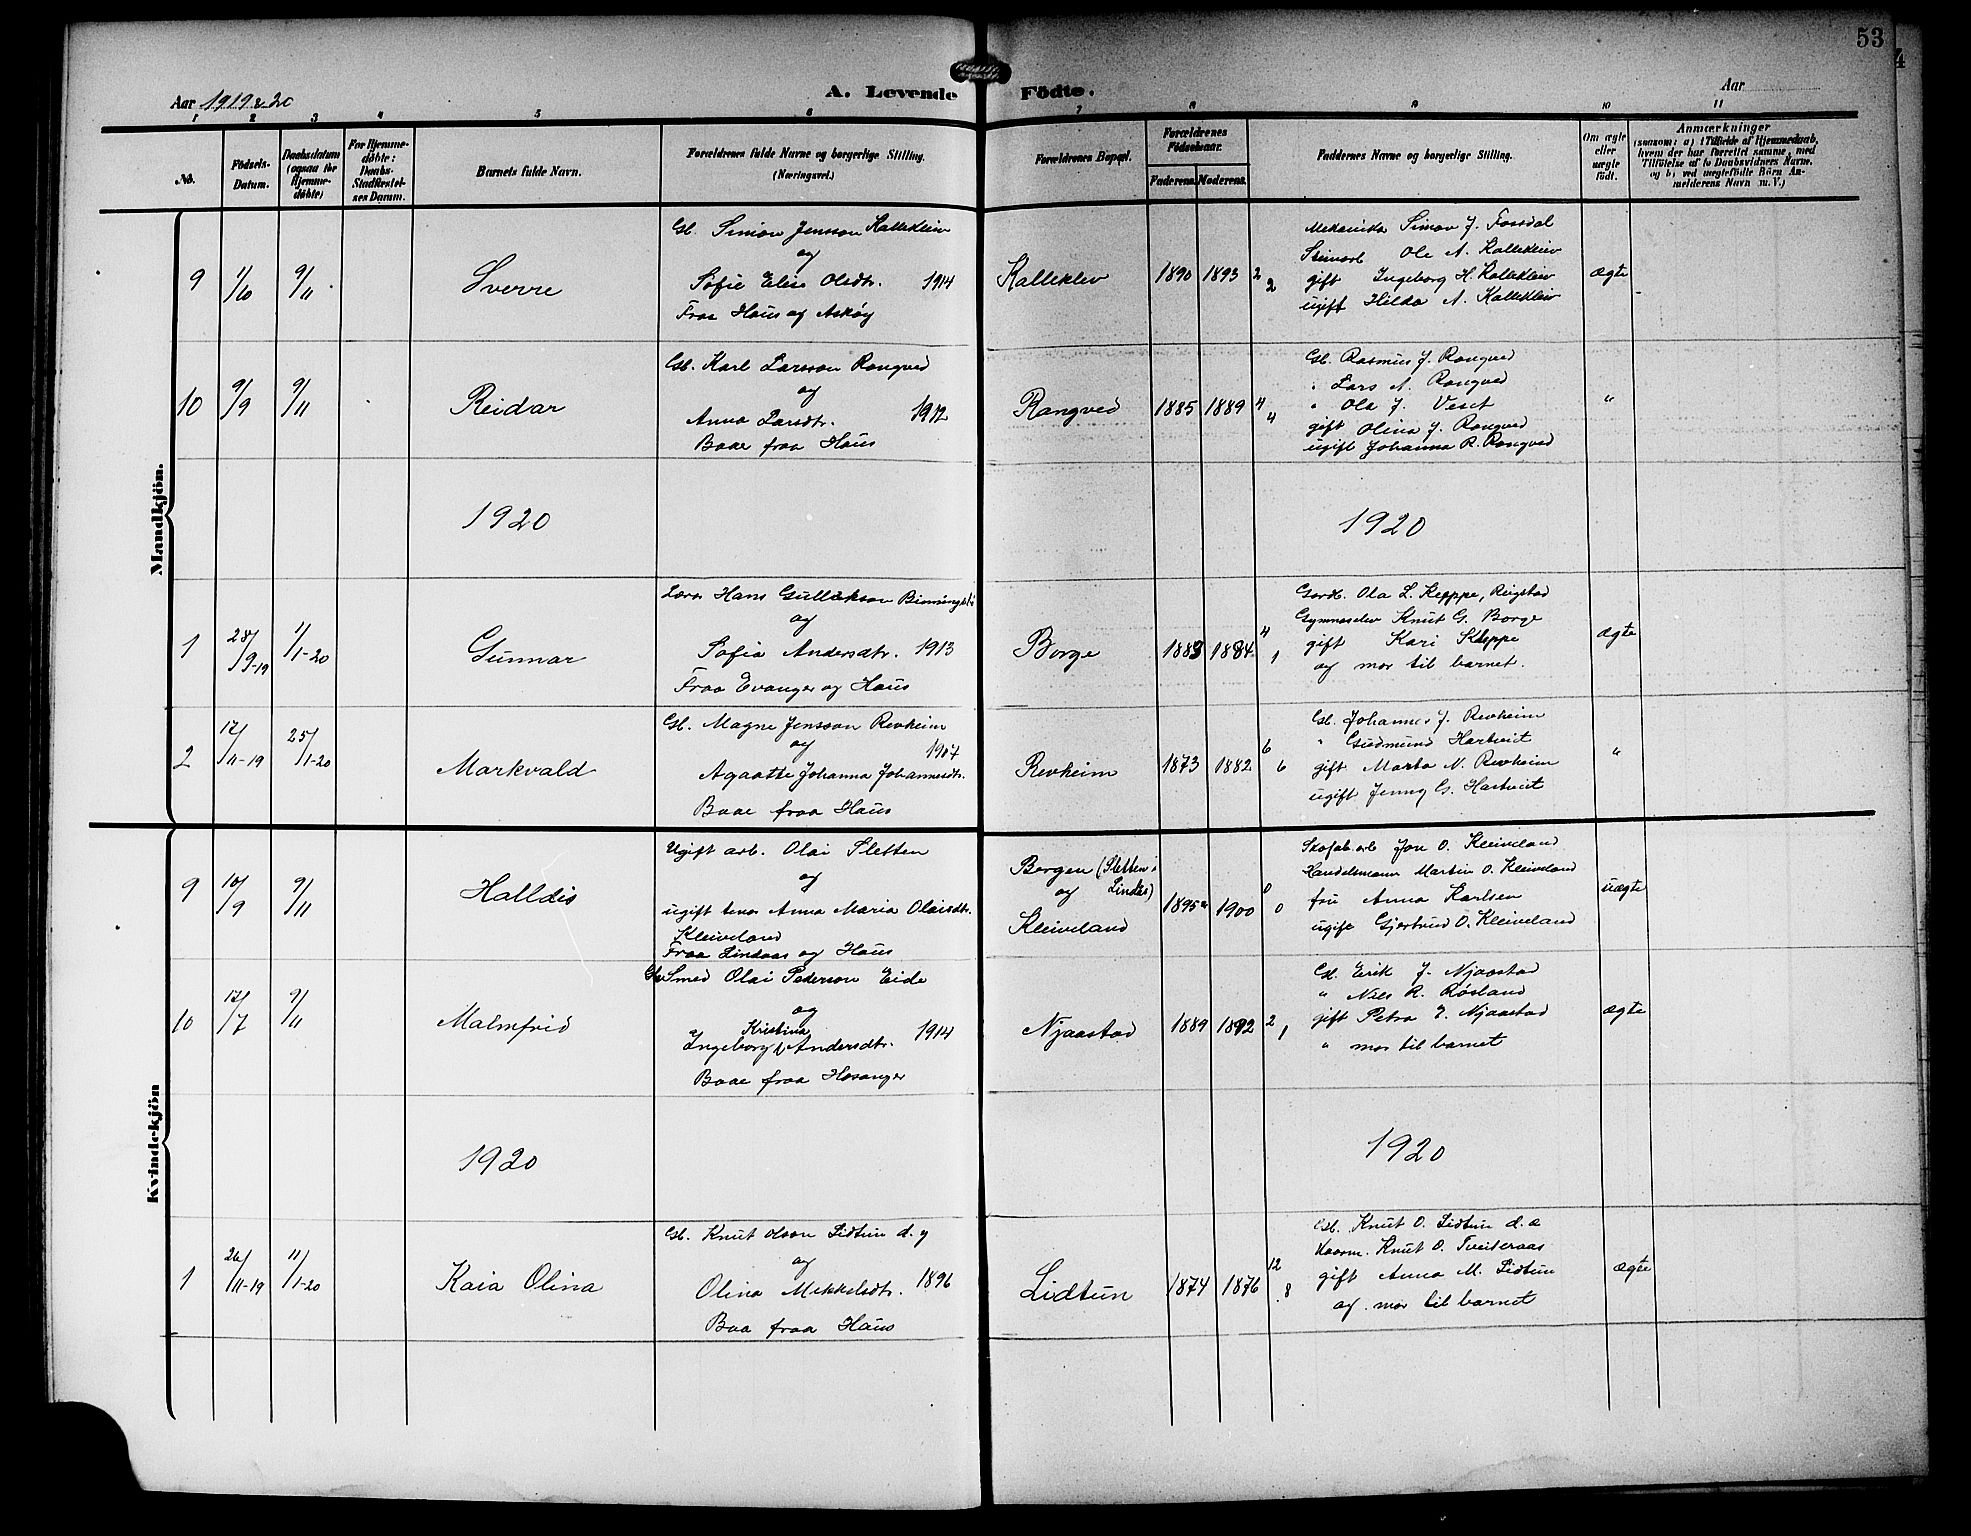 53
Aar 1919 & 20
A. Levende Födte.
Aar
1 2 3 4 5 6 7 8 9 10 11
No.
Födsels-Datum.
Daabsdatum (ogsaa for Hjemme-döbte)
For Hjemme-döbte: Daabs-Stadfæstel-ses Datum.
Barnets fulde Navn.
Forældrenes fulde Navne og borgerlige Stilling. (Næringsvei.)
Forældrenes Bopæl.
Forældrenes Födselsaar.
Faderens. Moderens.
Faddernes Navne og borgerlige Stilling.
Om ægte eller uægte födt.
Anmærkninger
(saasom: a) i Tilfælde af Hjemmedaab, hvem der har forrettet samme, med Tilföielse af to Daabsvidners Navne. og b) ved uægtefödte Börn An-melderens Navn m. V.)
Mandkjön.
9 1/10 9/11 Sverre
Gb. Simon Jensson Kalleklev
og
Sofie Elise Olsdtr. 1914
Fraa Haus og Askøy
Kalleklev 1890 1893 2 2
Mekanikar Simon J. Fossdal
Steinarb Ole A. Kalleklev
gift Ingeborg H. Kalleklev
ugift Hilda A. Kalleklev
ægte
10 9/9 9/11 Reidar
Gb. Karl Larsson Rongved
og
Anna Larsdtr. 1912
Baae fraa Haus
Rongved 1885 1889 4 4
Gb. Rasmus J. Rongved
" Lars A. Rongved
" Ola J. Veset
gift Olina J. Rongved
ugift Johanna R. Rongved
"
1920 1920
1 28/9-19 1/1-20 Gunnar
Lærar Hans Gullakson
og
Sofia Andersdtr. 1913
Fraa Evanger og Haus
Borge 1883 1884 4 1
Gardb. Ola L. Kleppe, Reigstad
Gymnaselev Knut G. Borge
gift Kari Kleppe
og mor til barnet.
ægte
2 17/11-19 25/1-20 Markvald
Gb. Magne Jensson Revheim
og 1907
Agaatte Johanna Johannesdtr.
Baae fraa Haus
Revheim 1873 1882 6 6
Gb. Johannes J. Revheim
" Gudmund Hartveit
gift Marta N. Revheim
ugift Jenny G. Hartveit
"
Kvindekjön
9 10/9 9/11 Halldis
Ugift arb. Olai Sletten
og
ugift tenar Anna Maria Olaisdtr.
Kleiveland
Fraa Lindaas og Haus
Bergen (Sletten i
og Lindås)
Kleiveland
1895 1900 0 0
Skofab.arb Jon O. Kleiveland
Handelsmann Martin O. Kleiveland
fru Anna Karlsen
ugift Gjertrud O. Kleiveland
uægte
10 17/7 9/11 Malmfrid
Smed Olai Pederson Eide
og
Kristina
Ingeborg Andersdtr. 1914
Baae fraa Hosanger
Njaastad 1889 1892 2 1
Gb. Erik J. Njaastad
" Nils R. Røsland
gift Petra J. Njaastad
" mor til barnet
ægte
1920 1920
1 26/11-19 11/1-20 Kaia Olina
Gb. Knut Olson Lidtun d. y
og
Olina Mikkelsdtr. 1896
Baa fraa Haus
Lidtun 1874 1876 12 8
Gb. Knut O. Lidtun d. e
Knut O. Tveiteraas
gift Anna M. Lidtun
og mor til barnet
ægte